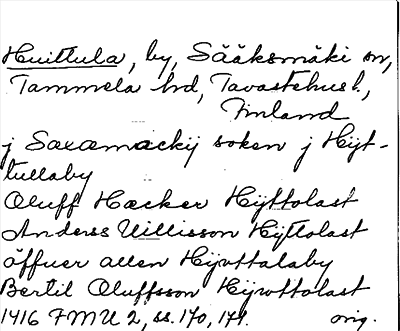 Huittula, by, Sääksmäki sn,
Tammela hd, Tavastehus l.,
Finland
j Saxamackij soken j Hijt-
tullaby
Oluff Hacker Hijttolast
Anderss Uillisson Hijttolast
öffuer allen Hijwttalaby
Bertil Oluffsson Hijwttolast
1416 FMU 2, ss. 170, 171. orig.